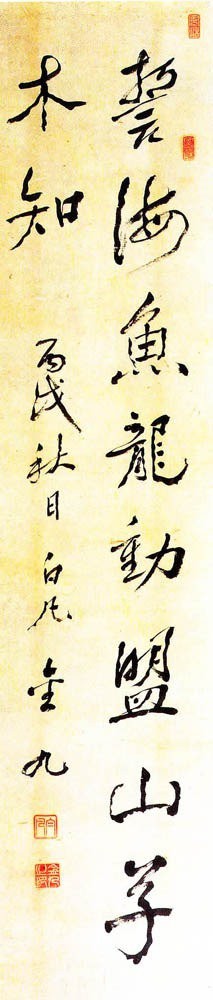 誓海魚龍動盟山草
木知
丙戌秋日 白凡 金九